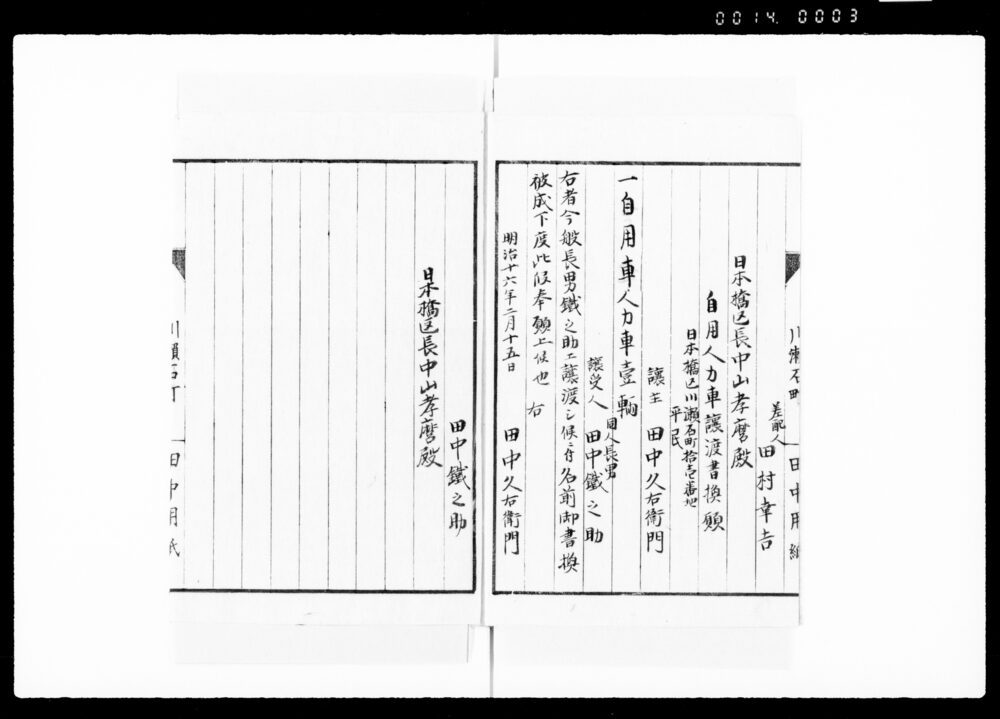 0014. 0003
川瀬石町 田中用紙
差配人 田村幸吉
日本橋区長中山孝麿殿
自用人力車譲渡書換願
日本橋区川瀬石町拾壱番地
平民
譲主 田中久右衛門
一自用車人力車壹輌
同人長男
譲受人 田中鐵之助
右者今般長男鐵之助エ譲渡シ候ニ付名前御書換
被成下度此段奉願上候也 右
明治十六年二月十五日 田中久右衛門
田中鐵之助
日本橋区長中山孝麿殿
川瀬石町 田中用紙